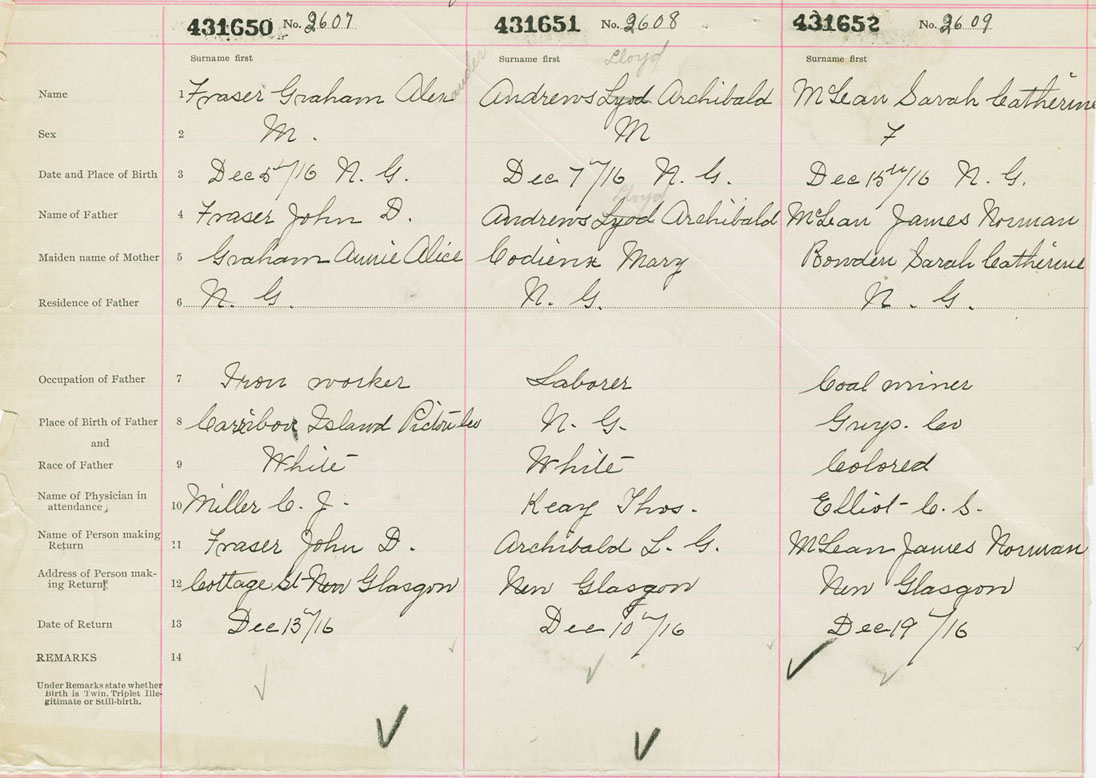 431650 No. 2607 431651 No. 2608 431652 No. 2609
Surname first Surname first Lloyd Surname first
Name 1 Fraser Graham Alexander Andrews Lyod Archibald McLean Sarah Catherine
Sex 2 M. M F
Date and Place of Birth 3 Dec 5th/16 N. G. Dec 7th/16 N. G. Dec 15th/16 N. G.
Lloyd
Name of Father 4 Fraser John D. Andrews Lyod Archibald McLean James Norman
Maiden name of Mother 5 Graham Annie Alice Mary Bowden Sarah Catherine
Residence of Father 6 N. G. N. G. N. G.
Occupation of Father 7 Iron worker Laborer Coal miner
Place of Birth of Father 8 Caribou Island Pictou Co N. G. Guys. Co
and
Race of Father 9 White White Colored
Name of Physician in
attendance 10 Miller C. J. Keay Thos. Elliot C. S.
Name of Person making
Return 11 Fraser John D. Archibald L. G. McLean James Norman
Address of Person mak-
ing Return 12 Cottage St New Glasgow New Glasgow New Glasgow
Date of Return 13 Dec 13th/16 Dec 10th/16 Dec 19th/16
REMARKS 14
Under Remarks state whether
Birth is Twin, Triplet Ille-
gitimate or Still-birth.